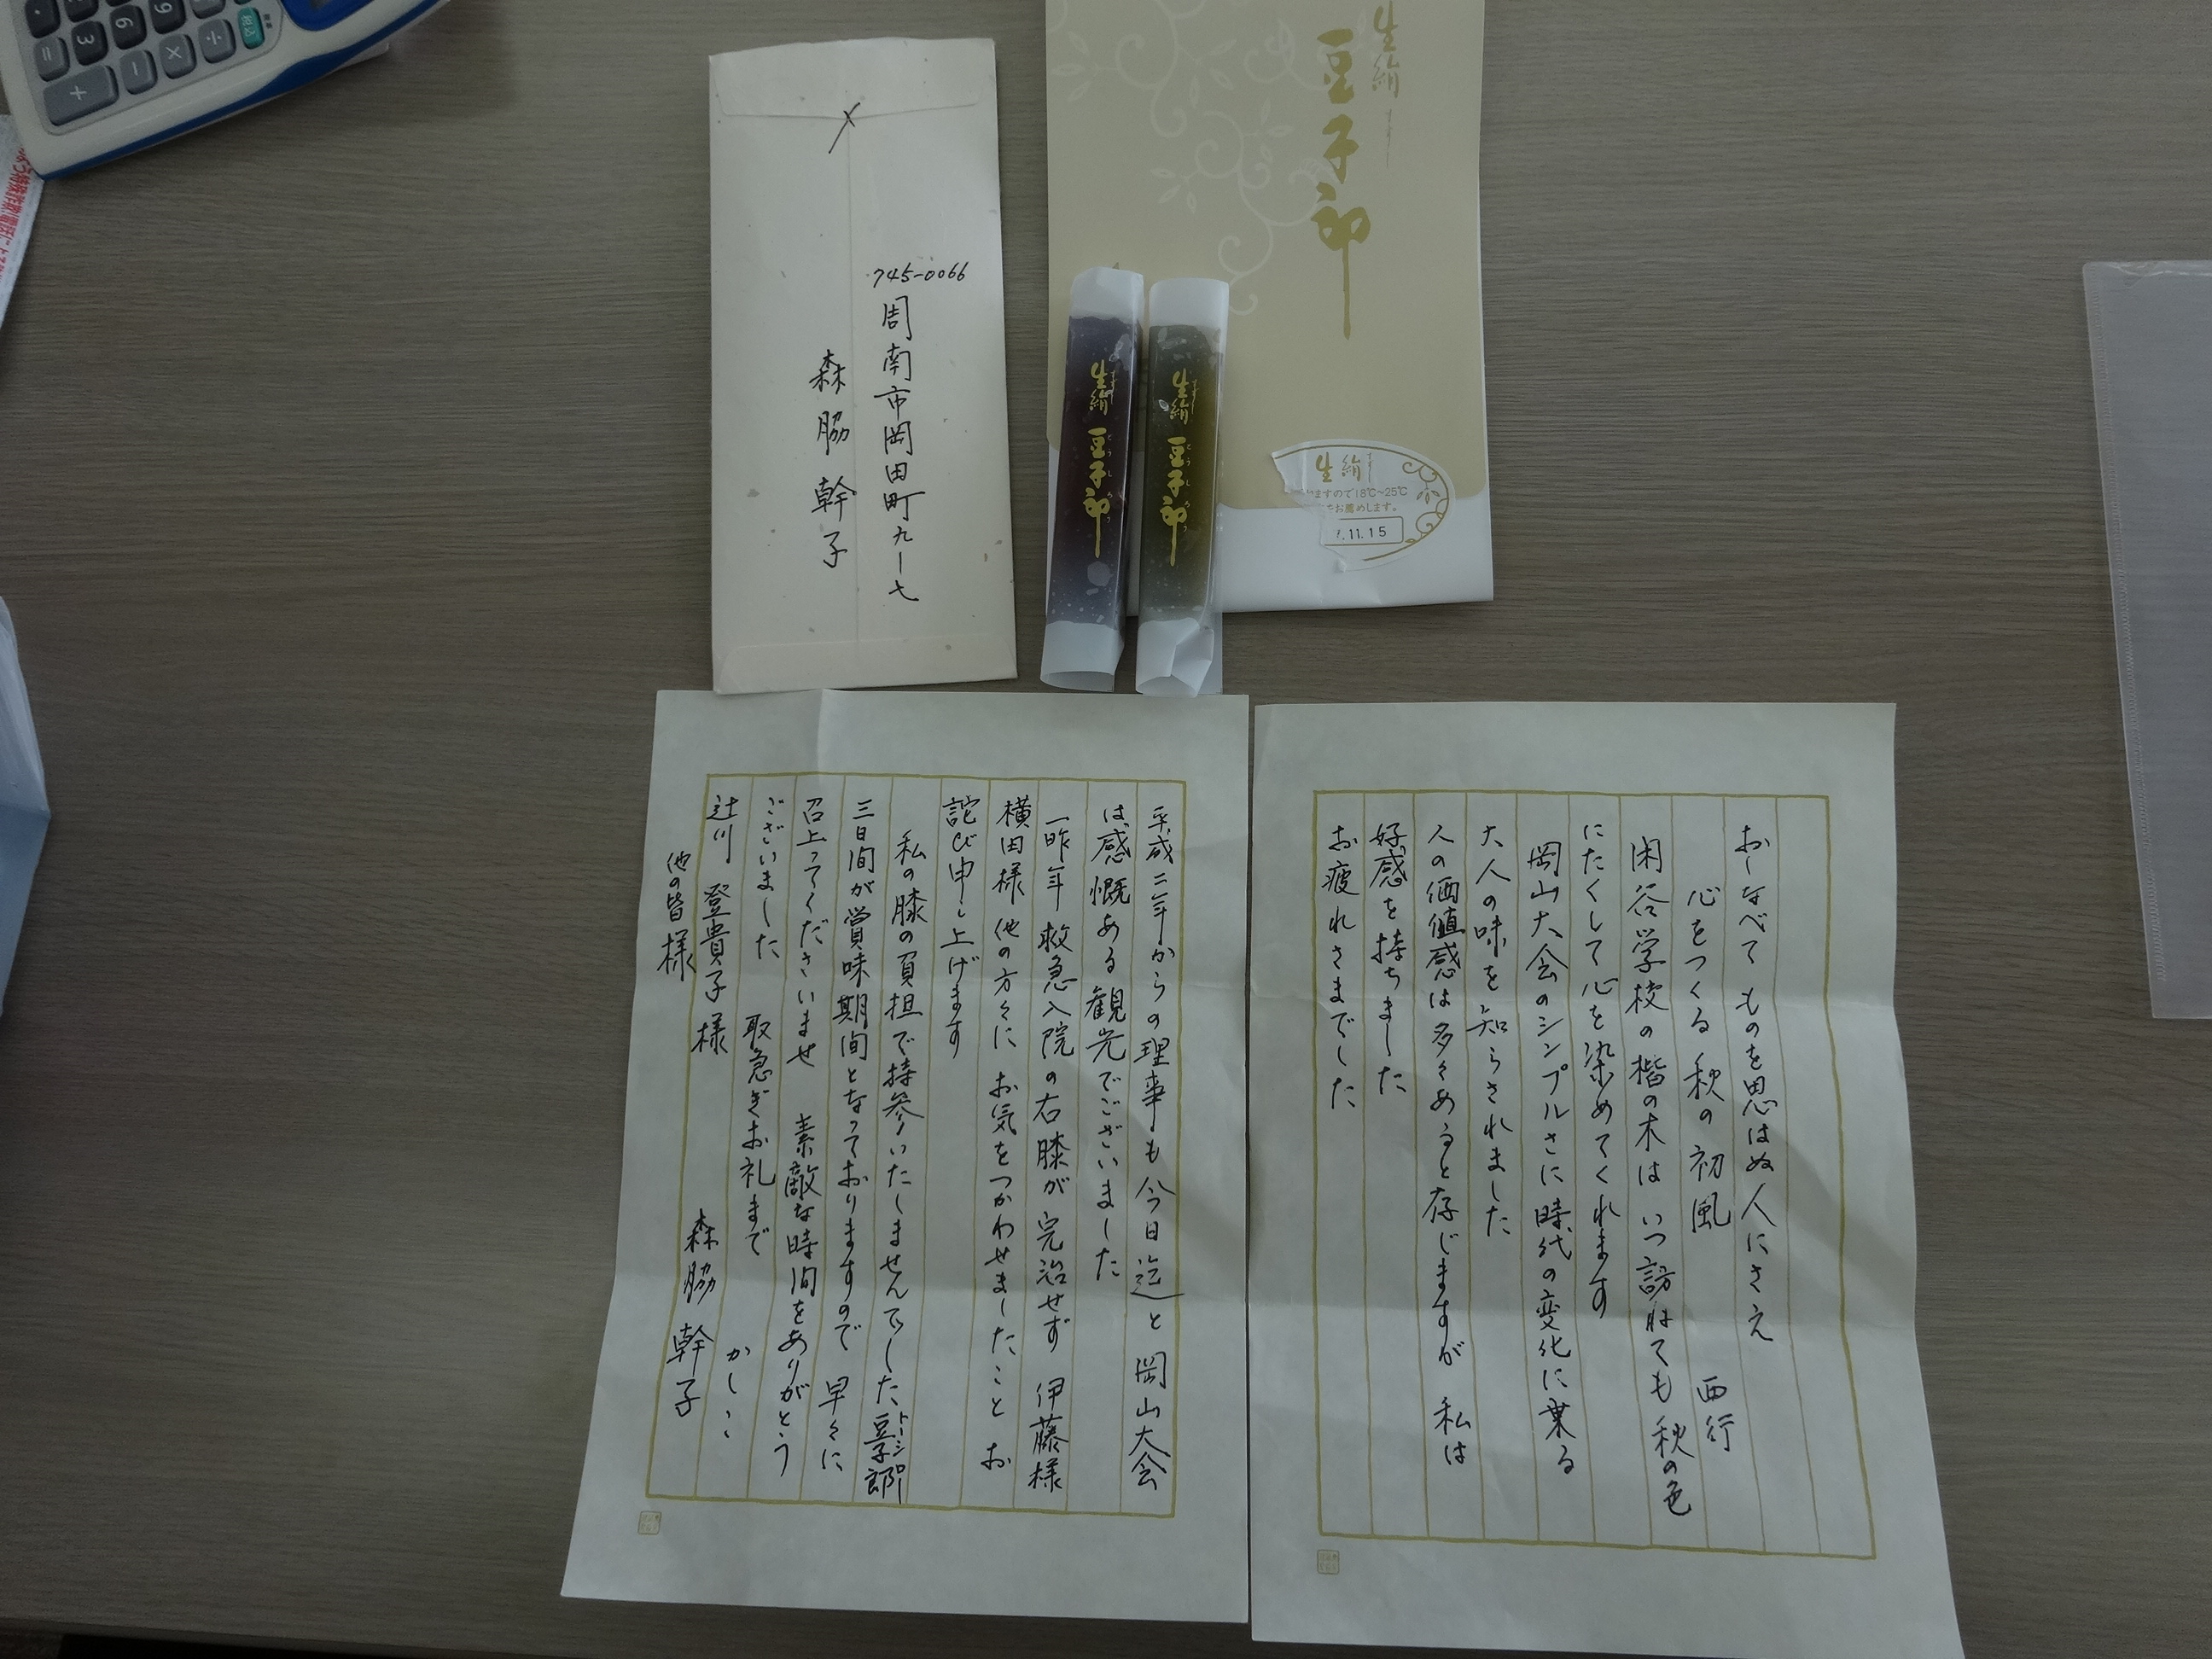 745-0066
周南市岡田町九ー七
森脇幹子
生絹
豆子郎
生絹
豆子郎
とうしろう
生絹
豆子郎
とうしろう
生絹
すずし
ますので18℃~25℃
をお薦めします。
7.11.15
おしなべて ものを思はぬ人にさえ
心をつくる 秋の初風 西行
閑谷学校の楷の木は いつ訪ねても 秋の色
にたくして心を染めてくれます
岡山大会のシンプルさに時代の変化に葉る
大人の味を知らされました
人の価値感は多々あると存じますが 私は
好感を持ちました
お疲れさまでした
平成二年からの理事も今日迄と 岡山大会
は感慨ある観光でございました
一昨年 救急入院の右膝が 完治せず 伊藤様
横田様 他の方々に お気をつかわせましたこと お
詫び申し上げます
私の膝の負担で持参いたしませんでした豆子郎
トーシロー
三日間が賞味期間となっておりますので 早々に
召上ってくださいませ 素敵な時間をありがとう
ございました 取急ぎお礼まで
かしこ
辻川 登貴子様
他の皆様
森脇 幹子
+
-
×
÷
=
3
6
9
税込